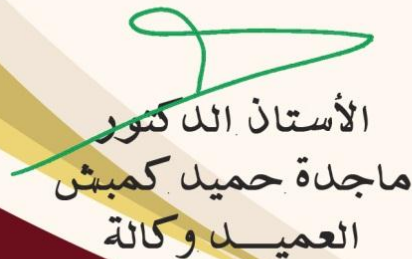 الأستاذ الدكتور
ماجدة حميد كمبش
العميـــد وكالة